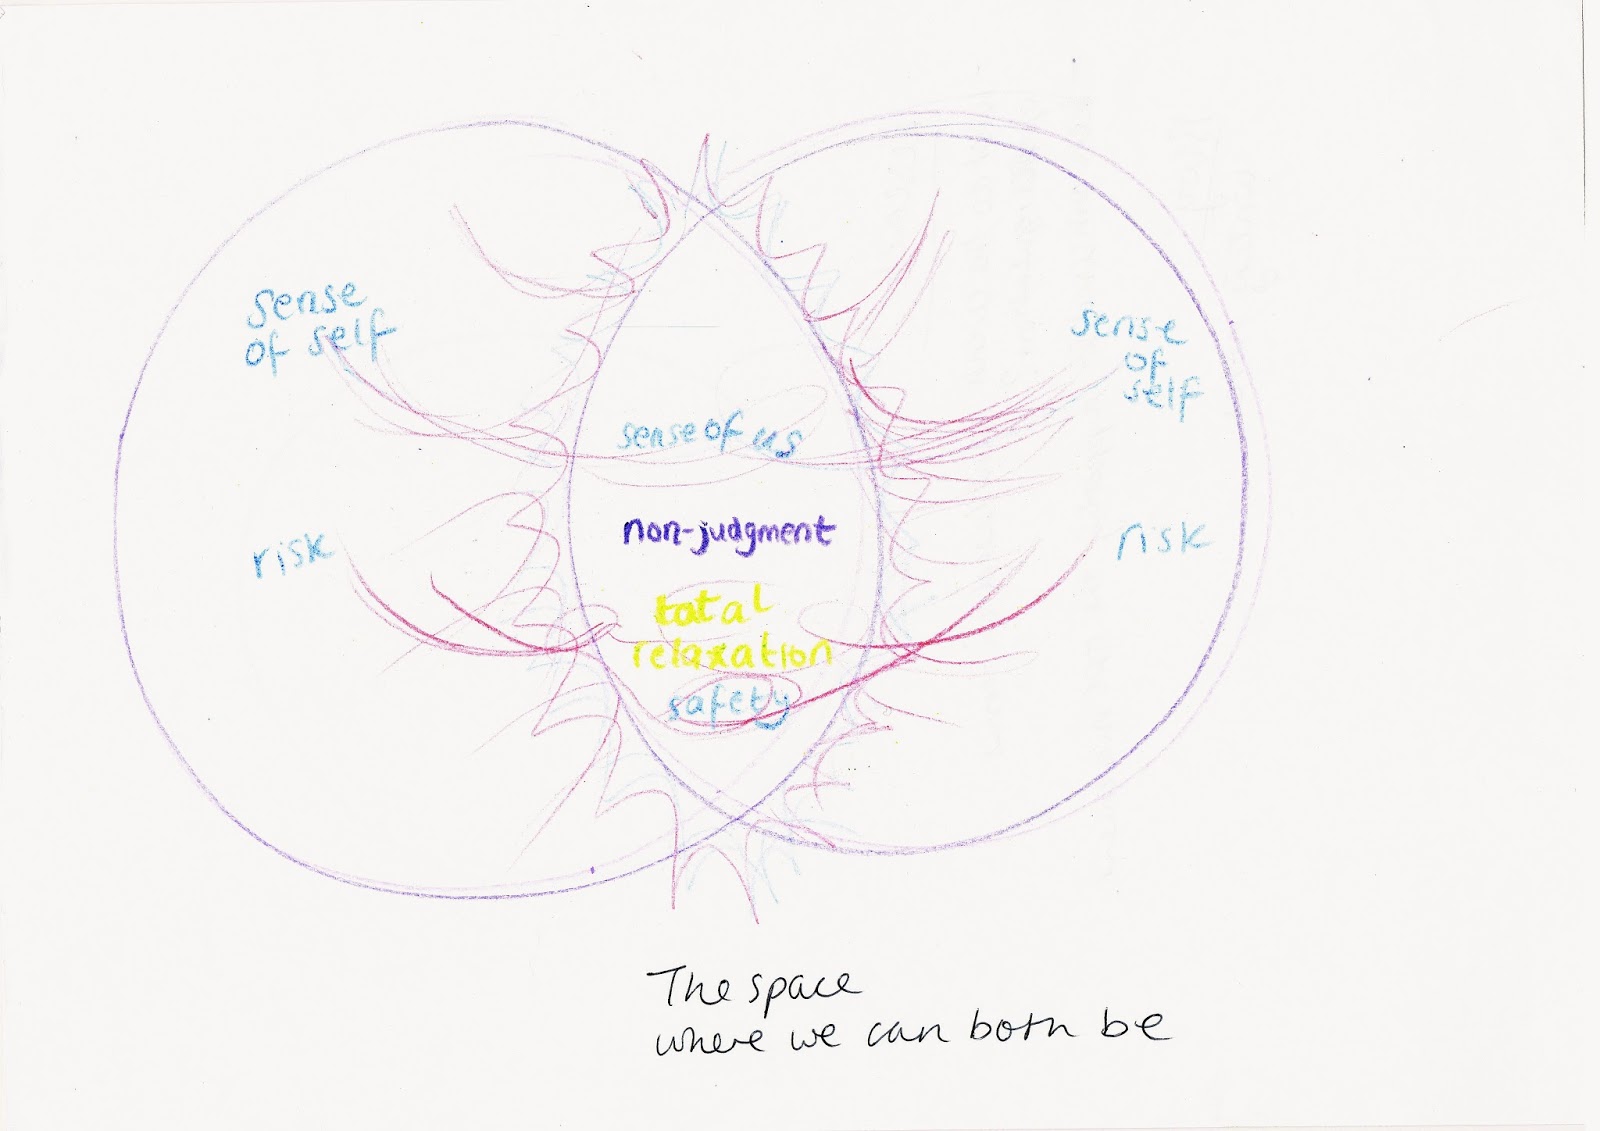 sense
of self
risk
sense of us
non-judgment
total
relaxation
safety
sense
of
self
risk
The space
where we can both be